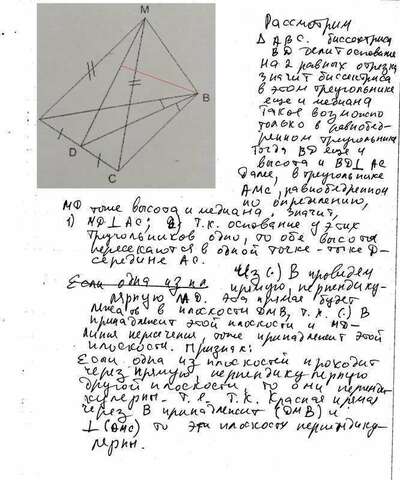 M
B
D
C
Рассмотрим
Δ ABC. биссектриса
BD делит основание
на 2 равных отрезка
значит биссектриса
в этом треугольнике
еще и медиана
Такое возможно
только в равнобед-
ренном треугольнике
Тогда BD еще и
высота и BD⊥AC
Далее, в треугольнике
AMC, равнобедренном
по определению,
MD тоже высота и медиана значит,
1) MD⊥AC; 2) т.к. основание у этих
треугольников одно, то обе высоты
пересекаются в одной точке - т-ке D-
середине AC.
Через (·) B проведем
Если одна из пл
прямую, перпендику-
лярную MD. Эта прямая будет
лежать в плоскости DMB, т.к. (·) B
принадлежит этой плоскости и MD-
линия пересечения тоже принадлежит этой
плоскости. Признак:
Если одна из плоскостей проходит
через прямую перпендикулярную
другой плоскости то они перпенди-
кулярны. Т.е. т.к. Красная прямая
через B принадлежит (DMB) и
⊥ (AMC) то эти плоскости перпендику-
лярны.